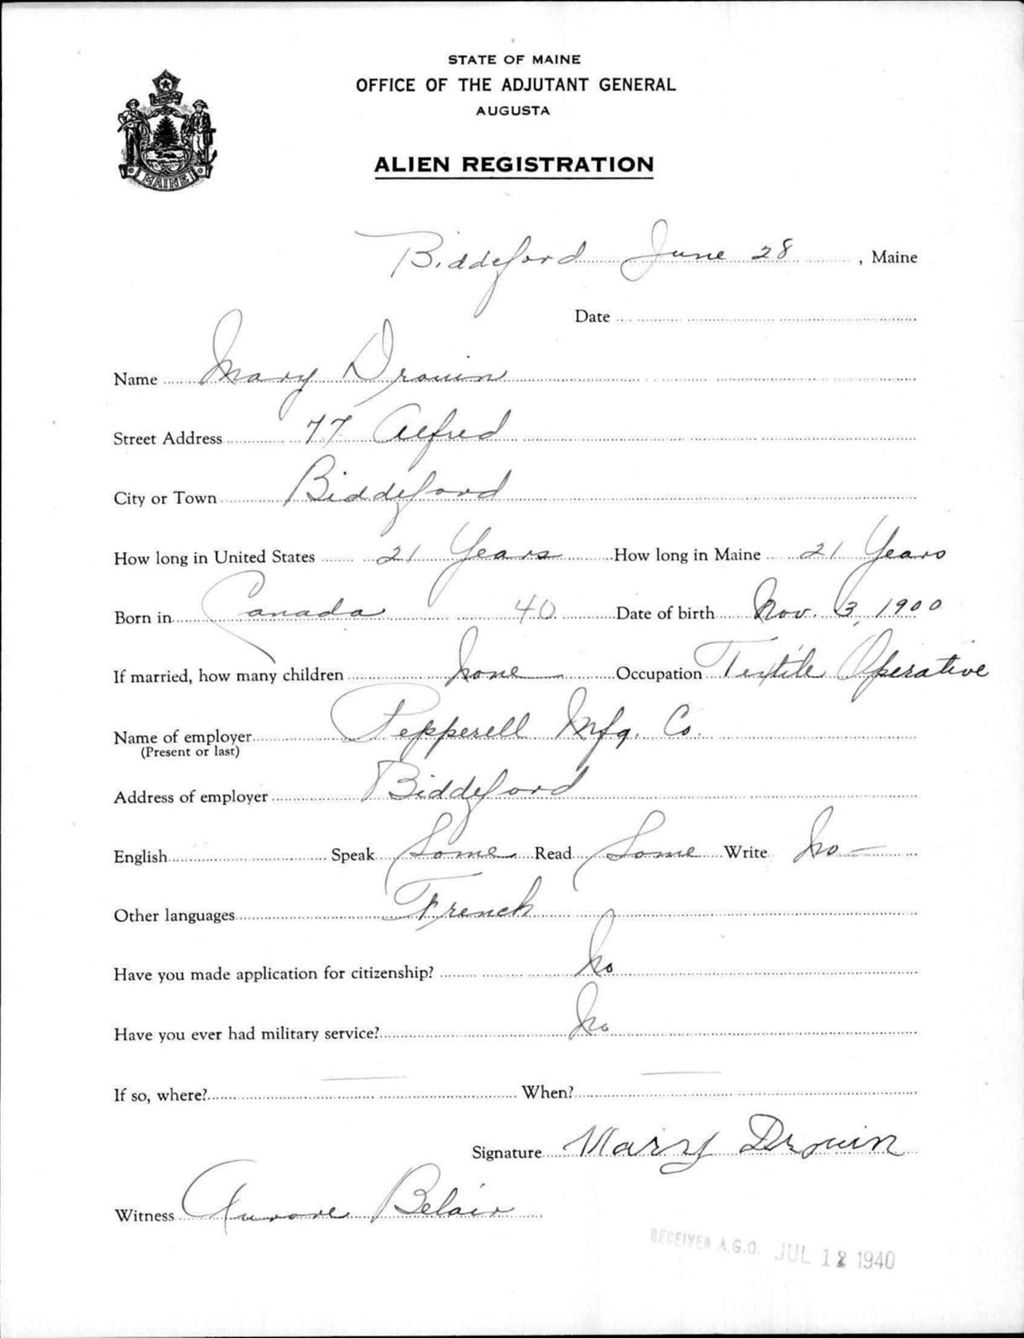 STATE OF MAINE
OFFICE OF THE ADJUTANT GENERAL
AUGUSTA
ALIEN REGISTRATION
MAINE
Biddeford June 28, Maine
Date
Name Mary Drouin
Street Address 77 Alfred
City or Town Biddeford
How long in United States 21 Years How long in Maine 21 Years
Born in Canada 40 Date of birth Nov. 3, 1900
If married, how many children None Occupation Textile Operative
Name of employer Pepperell Mfg. Co.
(Present or last)
Address of employer Biddeford
English Speak Some Read Some Write No
Other languages French
Have you made application for citizenship? No
Have you ever had military service? No
If so, where? — When? —
Signature Mary Drouin
Witness Aurore Belair
RECEIVED A.G.O. JUL 12 1940